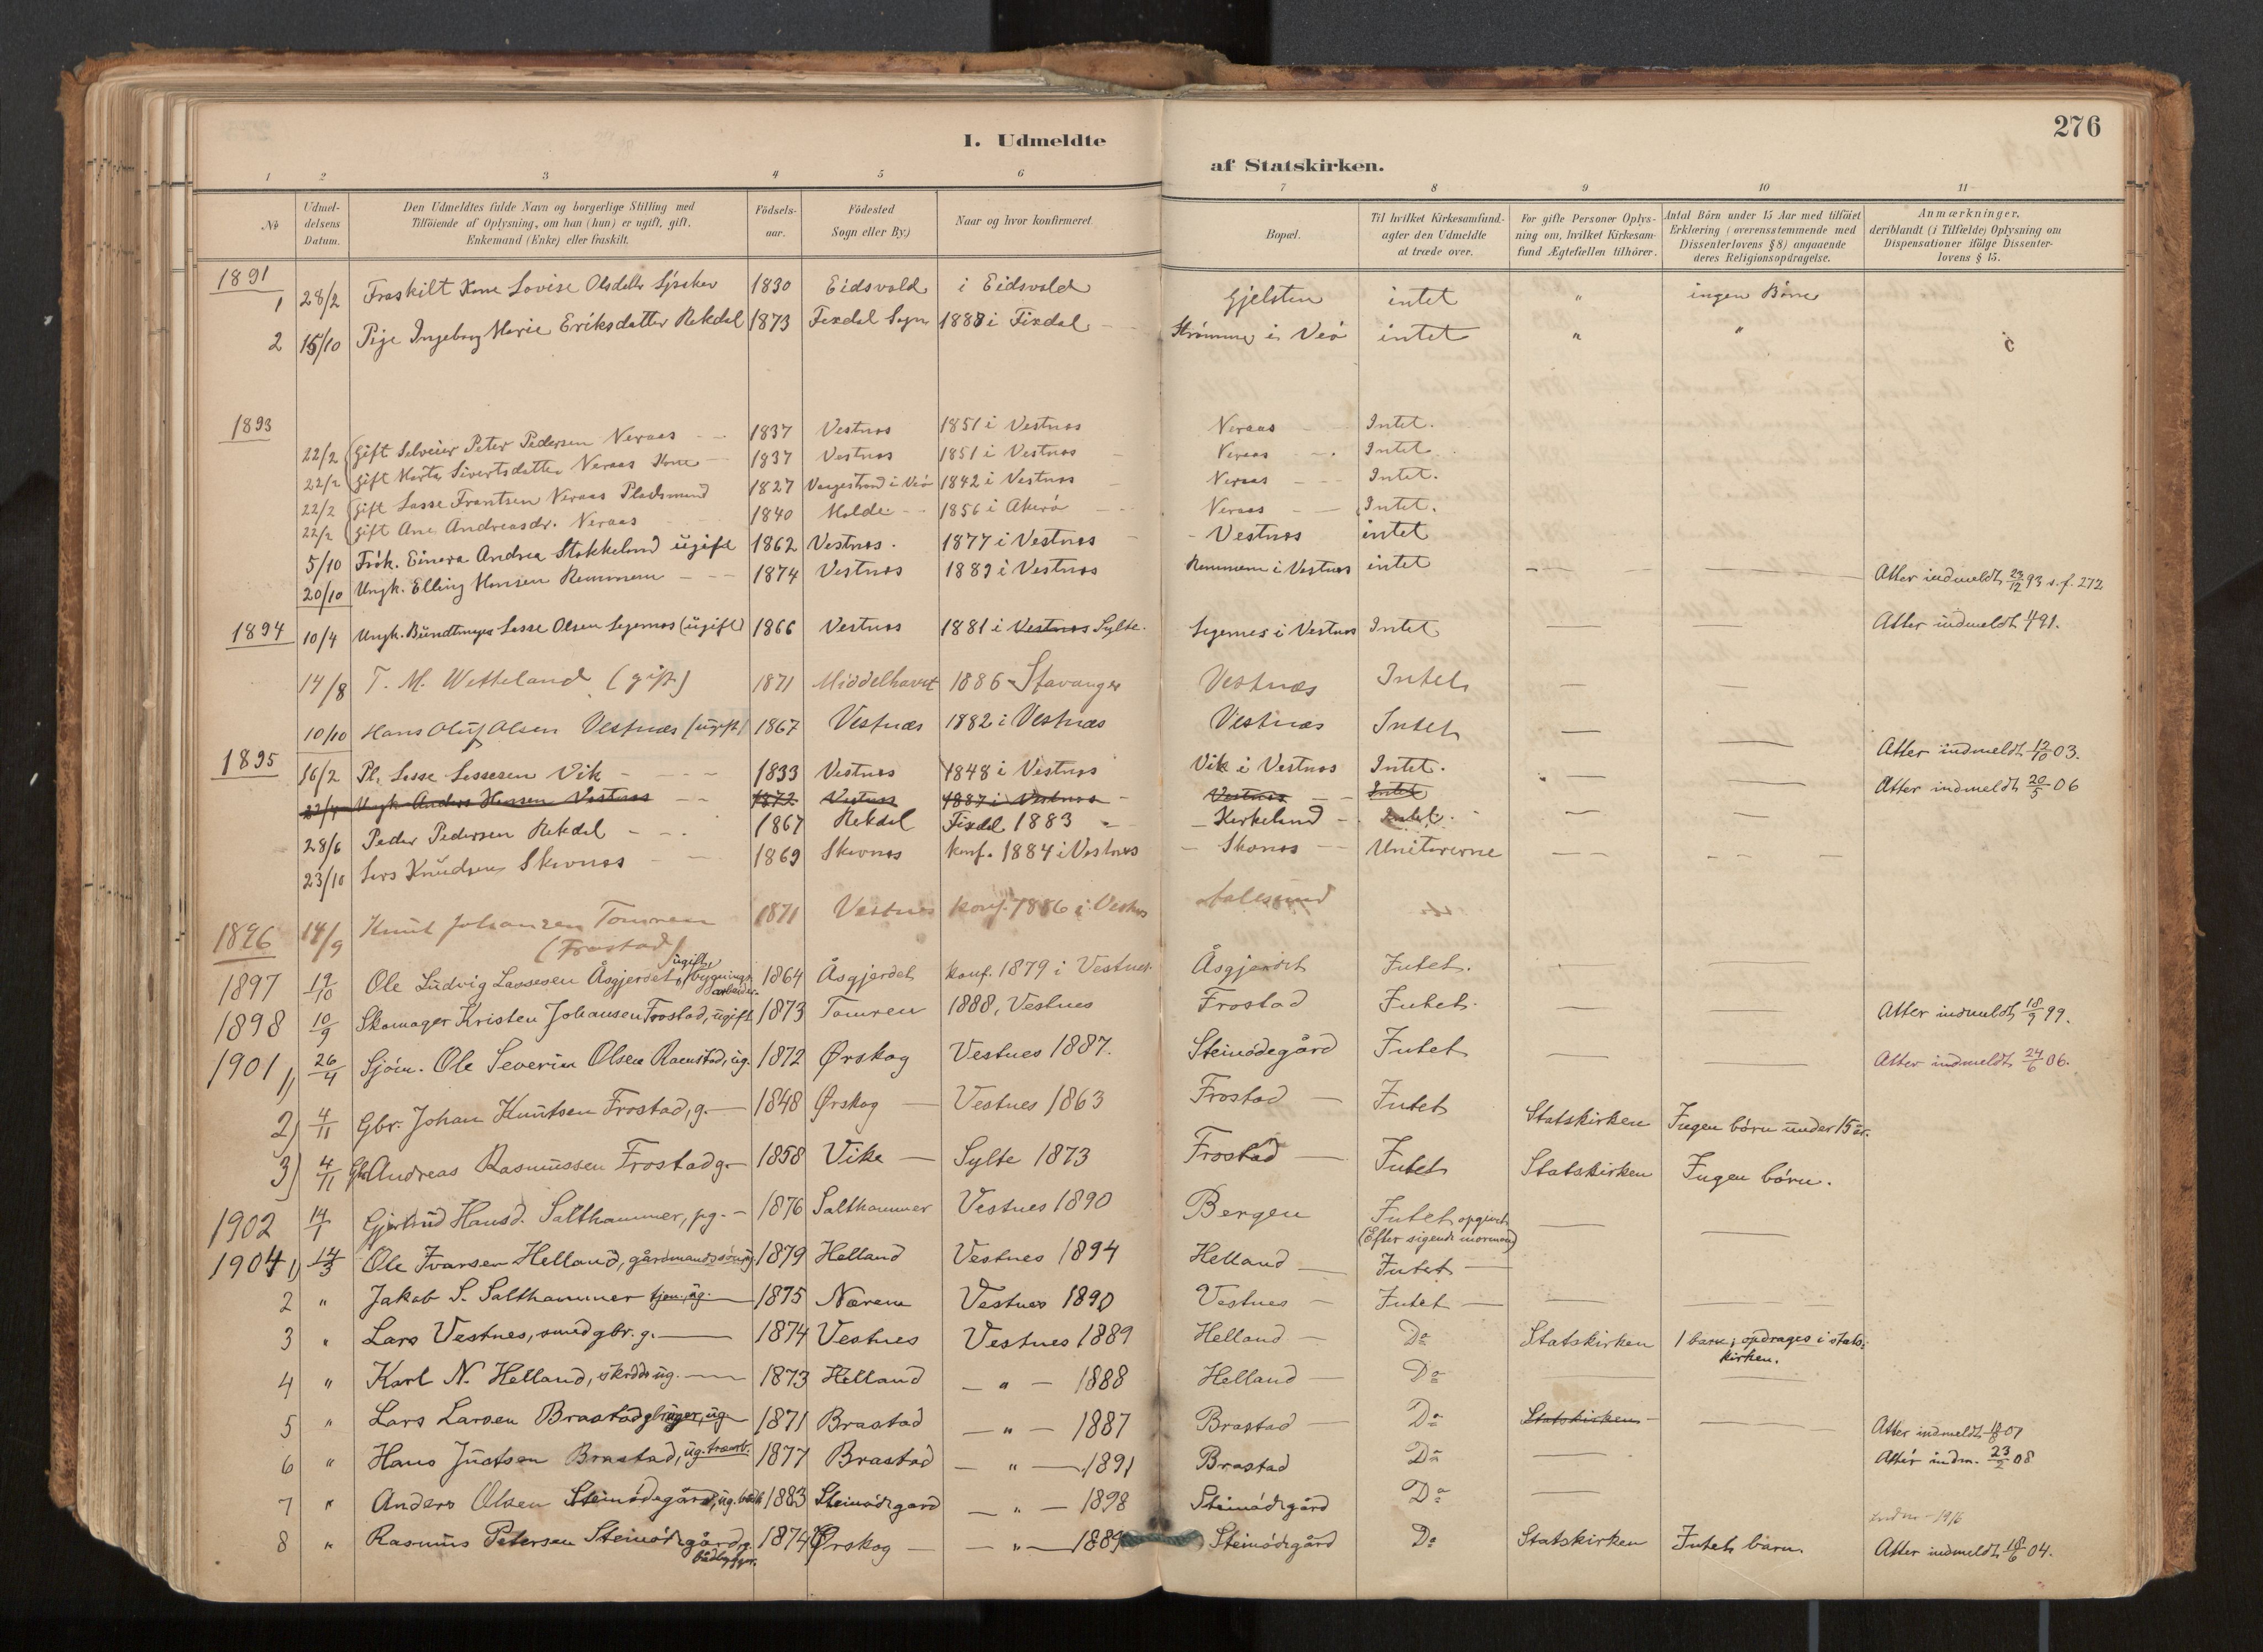 276
I. Udmeldte
af Statskirken.
1 2 3 4 5 6 7 8 9 10 11
No
Udmeldelsens Datum.
Den Udmeldtes fulde Navn og borgerlige Stilling med
Tilföiende af Oplysning, om han (hun) er ugift, gift,
Enkemand (Enke) eller fraskilt.
Födsels-
aar.
Födested
Sogn eller By)
Naar og hvor konfirmeret.
Bopæl.
Til hvilket Kirkesamfund-
agter den Udmeldte
at træde over.
For gifte Personer Oplys-
ning om, hvilket Kirkesam-
fund Ægtefællen tilhörer.
Antal Börn under 15 Aar med tilföiet
Erklæring (overensstemmende med
Dissenterlovens § 8) angaaende
deres Religionsopdragelse.
Anmærkninger,
deriblandt (i Tilfælde) Oplysning om
Dispensationer ifölge Dissenter-
lovens § 15.
1891
1 28/2 Fraskilt Kone Lovise Olsdatter 1830 Eidsvold i Eidsvold Gjelsten intet " ingen Börn
2 15/10 Pige Ingeborg Marie Eriksdatter Rekdal 1873 Fixdal Sogn 1888 i Fixdal Strömmen i Veö intet " "
1893
22/2 Gift Selveier Peter Pedersen Neraas 1837 Vestnes 1851 i Vestnes Neraas Intet.
22/2 Gift Marta Sivertsdatter Neraas Kone 1837 Vestnes 1851 i Vestnes Neraas Intet
22/2 Gift Lasse Frantsen Neraas Pladsmand 1827 Vaagestrand i Veö 1842 i Vestnes Neraas Intet.
22/2 Gift Ane Andreasdr. Neraas 1840 Molde 1856 i Akerö Neraas Intet.
5/10 Frök. Einera Andrea Stokkeland ugift 1862 Vestnes. 1877 i Vestnes Vestnes intet
20/10 Ungk. Elling Hansen Remmem 1874 Vestnes 1889 i Vestnes Remmem i Vestnes intet — — Atter indmeldt 23/12 93 s. f. 272
1894 10/4 Ungk. Bundtmager Lasse Olsen Legernes (ugift) 1866 Vestnes 1881 i Vestnes Sylte. Legernes i Vestnes Intet — — Atter indmeldt 91.
14/8 T. M. Wetteland (gift) 1871 Middelhavet 1886 Stavanger Vestnæs Intet — —
10/10 Hans Oluf Olsen Vestnæs (ugift) 1867 Vestnæs 1882 i Vestnæs Vestnæs Intet — — Atter indmeldt 12/10 03.
1895 16/2 Pl. Lasse Lassesen Vik 1833 Vestnes 1848 i Vestnes Vik i Vestnes Intet. — — Atter indmeldt 20/5 06
Ungk. Anders Hansen Vestnes 1872 Vestnes 1887 i Vestnes Vestnes Intet
28/6 Peder Pedersen Rekdal 1867 Rekdal Fixdal 1883 Kirkeland Intet. —
23/10 Lars Knudsen Skovnes 1869 Skovnes konf. 1884 i Vestnes Skovnes Unitarerne — —
1896 14/9 Knut Johansen Tomren 1871 Vestnes konf. 1886 i Vestnes Aalesund
(Frostad)
1897 19/10 Ole Ludvig Lassesen Åsgjerdet, ugift, bygningsarbeider. 1864 Åsgjerdet konf. 1879 i Vestnes Åsgjerdet Intet. — —
1898 10/9 Skomager Kristen Johansen Frostad, ugift 1873 Tomren 1888, Vestnes Frostad Intet. — — Atter indmeldt 18/9 99.
1901 1) 26/4 Sjöm. Ole Severin Olsen Ramstad, ug. 1872 Ørskog Vestnes 1887. Steinödegård Intet — — Atter indmeldt 24/6 06.
2) 4/11 Gbr. Johan Knutsen Frostad, g. — 1848 Ørskog — Vestnes 1863 Frostad — Intet Statskirken Ingen börn under 15 år.
3) 4/11 Gbr Andreas Rasmussen Frostad g. — 1858 Vike — Sylte 1873 Frostad — Intet Statskirken Ingen börn.
1902 14/1 Gjertrud Hansd. Salthammer, pg. — 1876 Salthammer Vestnes 1890 Bergen Intet opgivet — —
(Efter sigende mormon)
1904 1) 14/3 Ole Ivarsen Helland, gårdmandssön ug 1879 Helland Vestnes 1894 Helland — Intet —
2 " Jakob S. Salthammer tjen., ug. — 1875 Nærem Vestnes 1890 Vestnes — Intet — — —
3 " Lars Vestnes, smed gbr. g. — 1874 Vestnes Vestnes 1889 Helland — Do Statskirken 1 barn, opdrages i stats-
kirken.
4 " Karl N. Helland, skrædd. ug. — 1873 Helland — " — 1888 Helland — Do — —
5 " Lars Larsen Brastad gbruger, ug — 1871 Brastad — " — 1887 Brastad — Do Statskirken — Atter indmeldt 07
6 " Hans Justsen Brastad, ug. træarb. 1877 Brastad — " — 1891 Brastad Do — Atter indm. 23/2 08
7 " Anders Olsen Steinödegård, ug. 1883 Steinödegård — " — 1898 Steinödegård Do —
8 " Rasmus Petersen Steinödegård g. 1874 Ørskog — — " — 1889 Steinödegård Do Statskirken Intet barn. Atter indmeldt 18/6 04.
bådbygger.